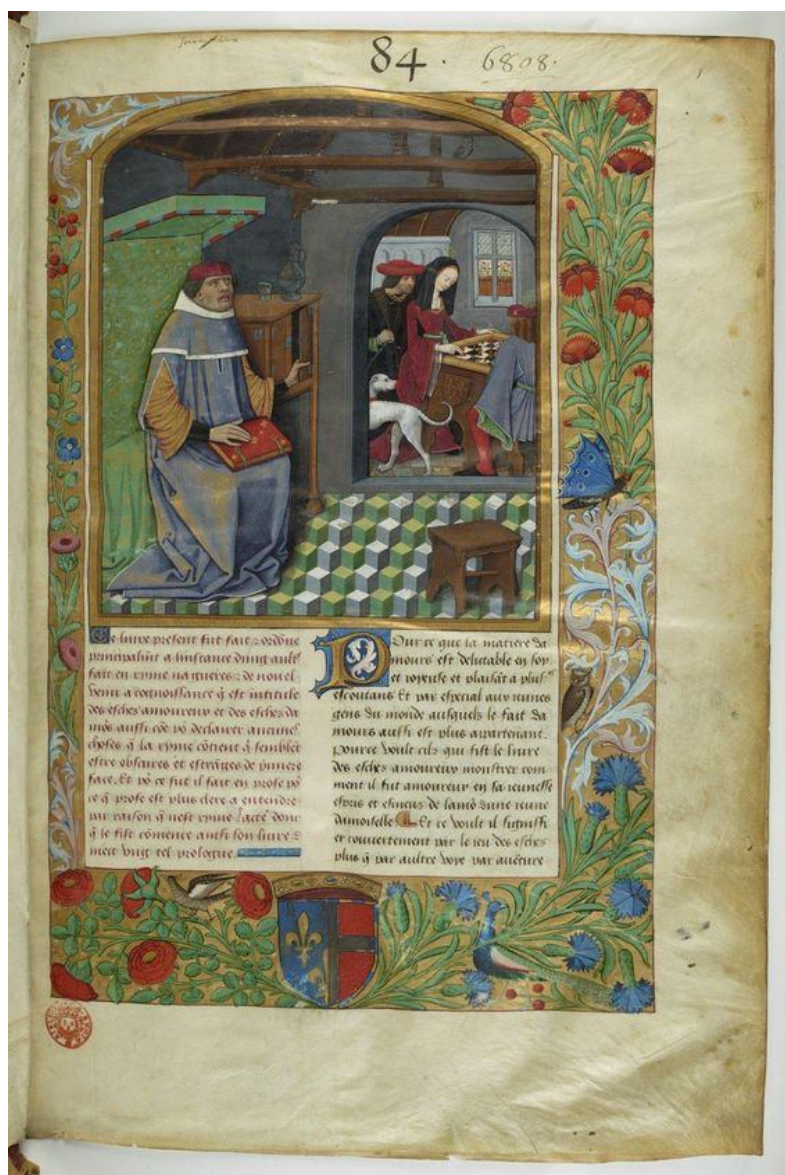 84 · 6808 ·
1
Ce livre present fut fait & ordõne
principalm̃t a linstance dung aultʳ
fait en ryme na gueres & de nouel
venu a cognoissance q̃ est intitule
des esches amoureux et des esches da
mõs aussi cõe põ declarer aucunes
choses q̃ la ryme cõtient q̃ semblẽt
estre obscures et estrãges de pmiere
face. Et põ ce fut il fait en prose põ
ce q̃ prose est plus clere a entendre
par raison q̃ nest ryme Lacte donc
q̃ le fist cõmence ainsi son livre &
mect vng tel prologue
Pour ce que la matiere da
mours est delictable en soy
et ioyeuse et plaisãt a plusʳˢ
escoutans Et par especial aux ieunes
gens du monde ausquels le fait da
mours aussi est plus appartenant.
Pource voult cilz qui fist le livre
des esches amoureux monstrer com
ment il fut amoureux en sa ieunesse
espris et esmeus de lamõ dune ieune
damoiselle Et ce voult il signiffi
er couvertement par le ieu des esches
plus q̃ par aultre voye par auẽture